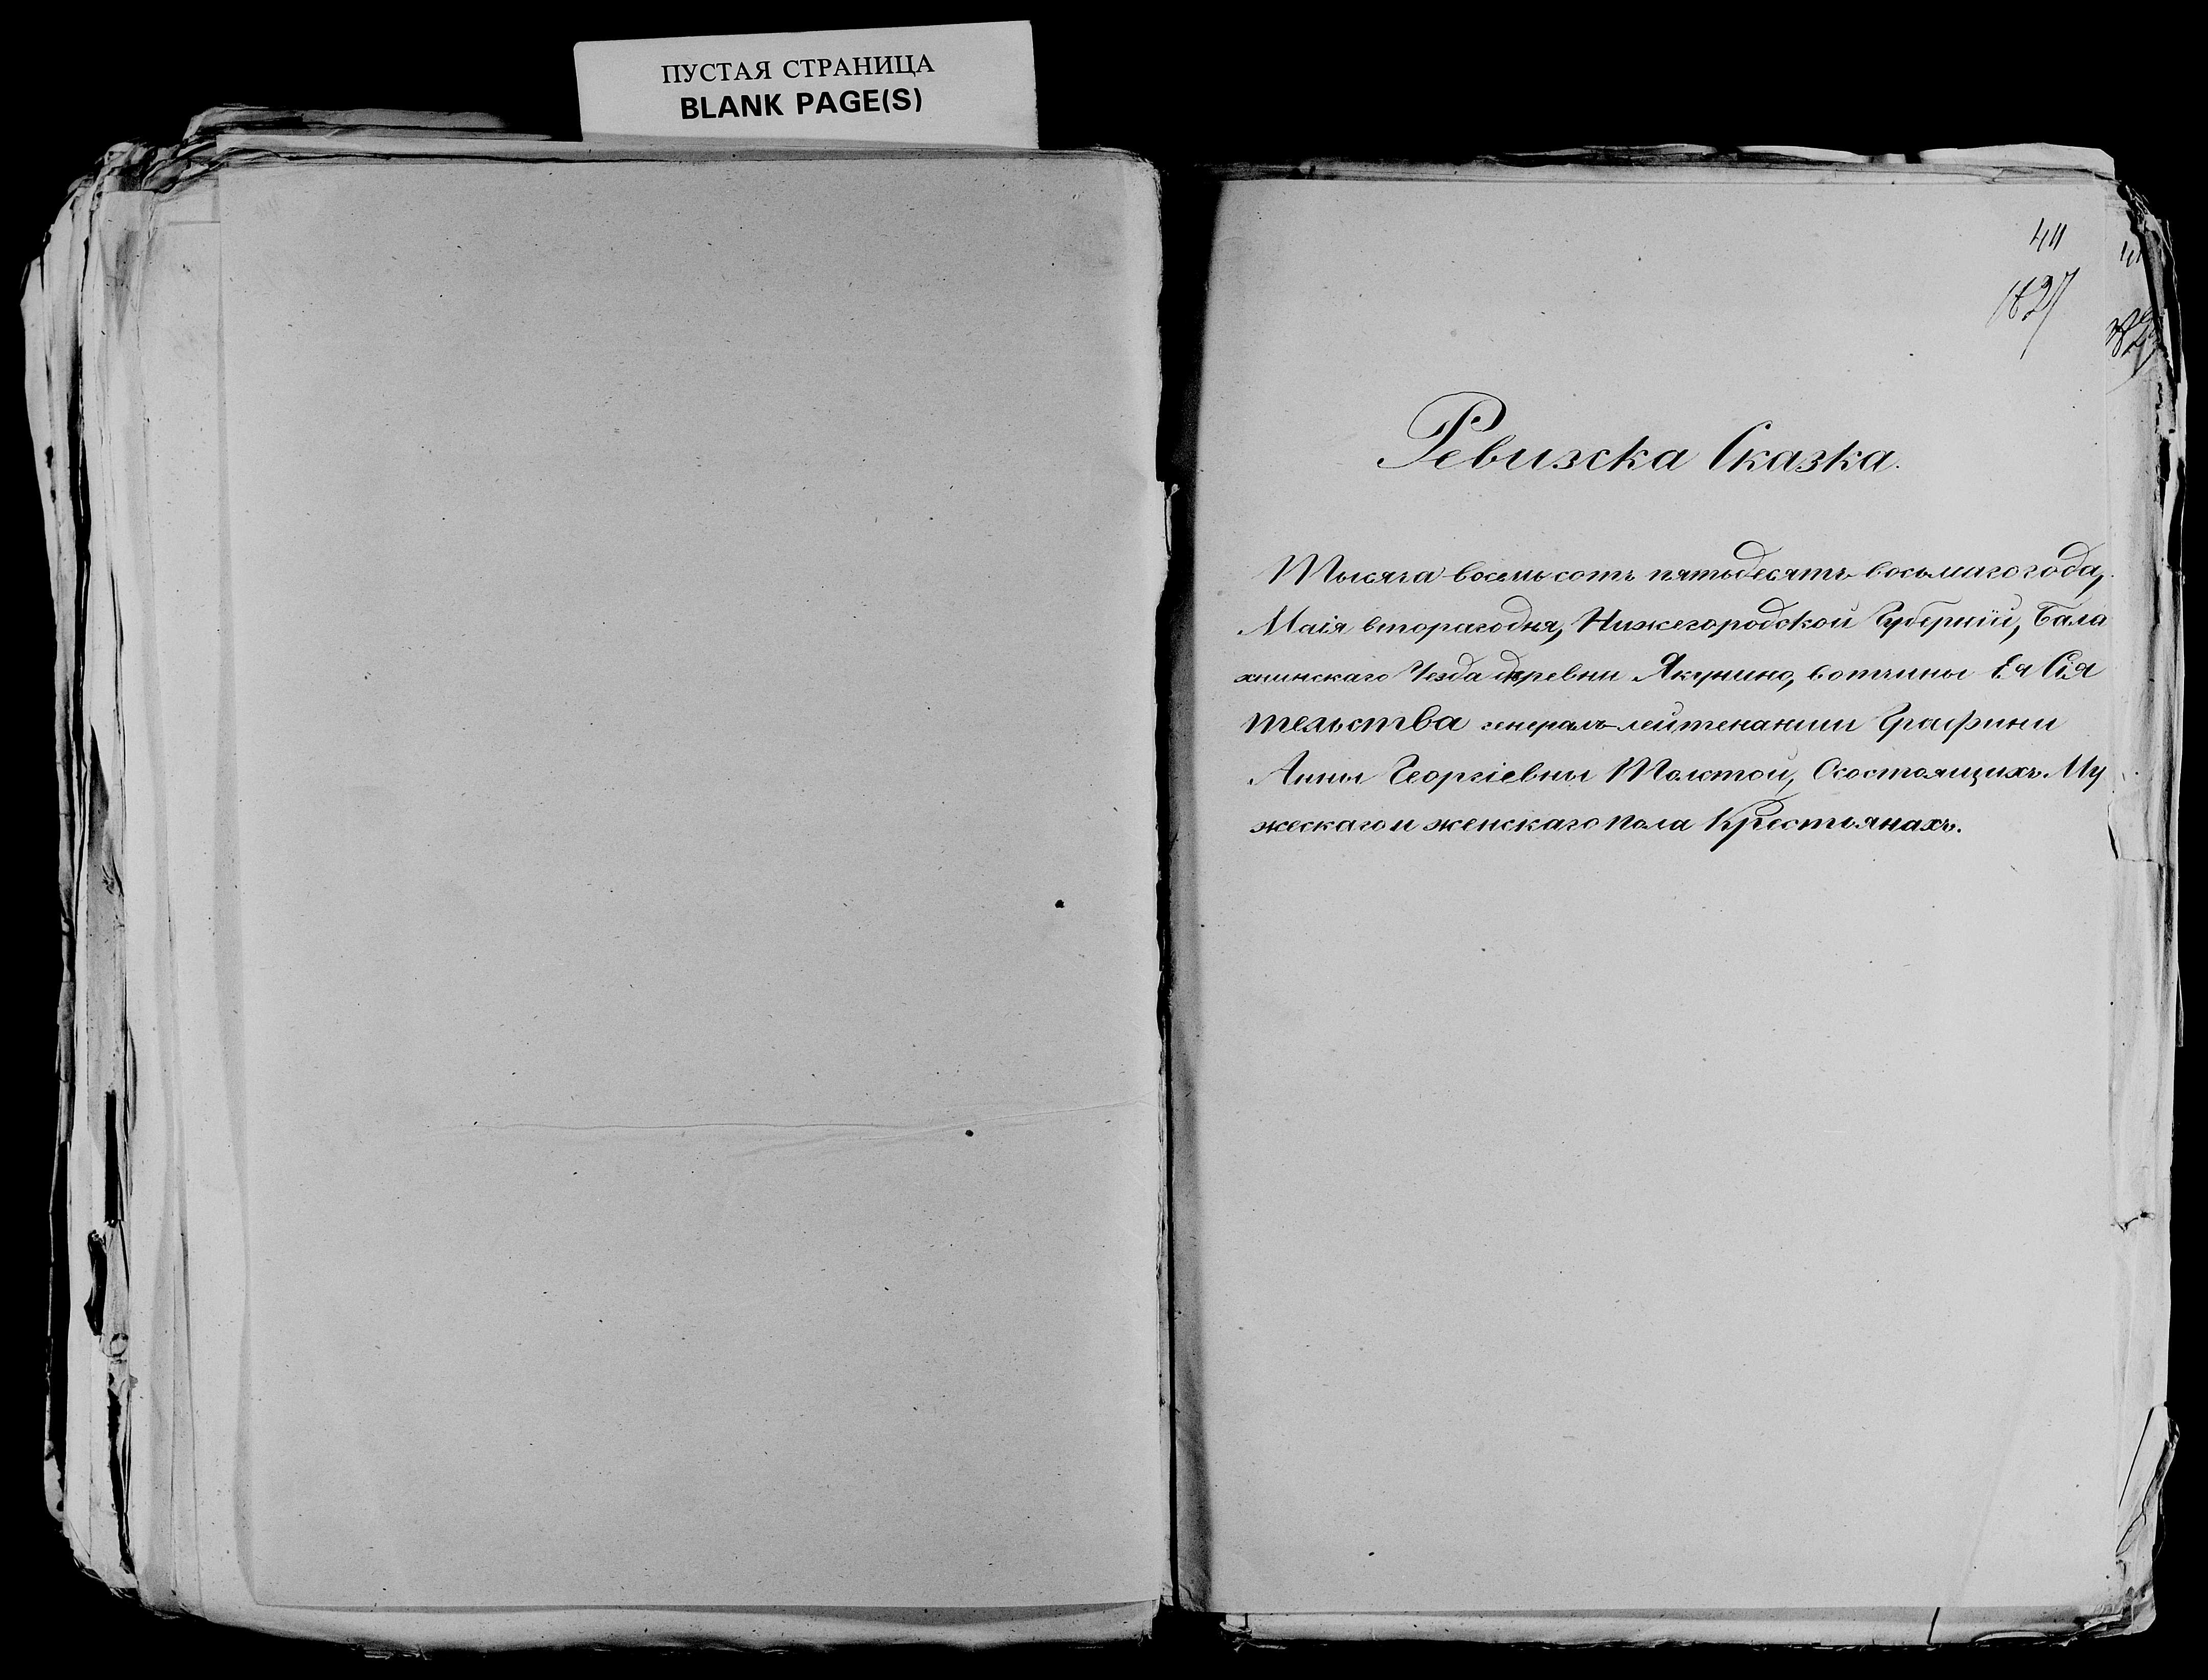 ПУСТАЯ СТРАНИЦА
BLANK PAGE(S)
411
Ревизска Сказка.
Тысяча восемь сотъ пятьдесятъ восьмаго года,
Маія втораго дня, Нижегородской Губерніи, Бала
хнинскаго Уезда деревни Якунино, вотчины Ея Сія
тельства генералъ-лейтенанши Графини
Анны Георгіевны Толстой, О состоящихъ Му
жескаго и женскаго пола Крестьянахъ.